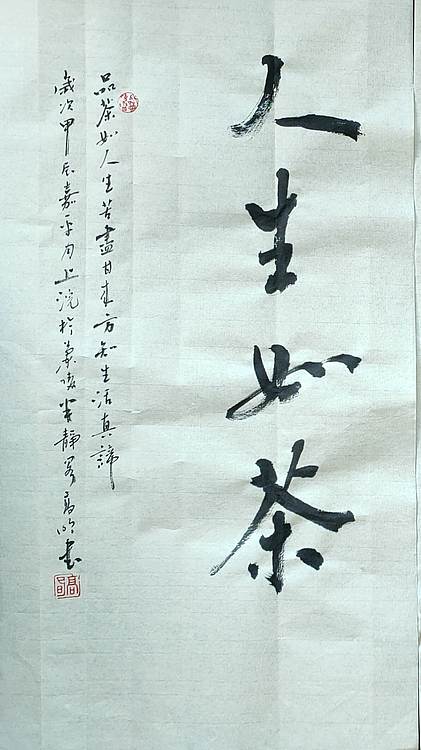 人生如茶
品茶如人生苦盡甘来方知生活真諦
歲次甲辰嘉平月上浣於美陵半靜齋高明書